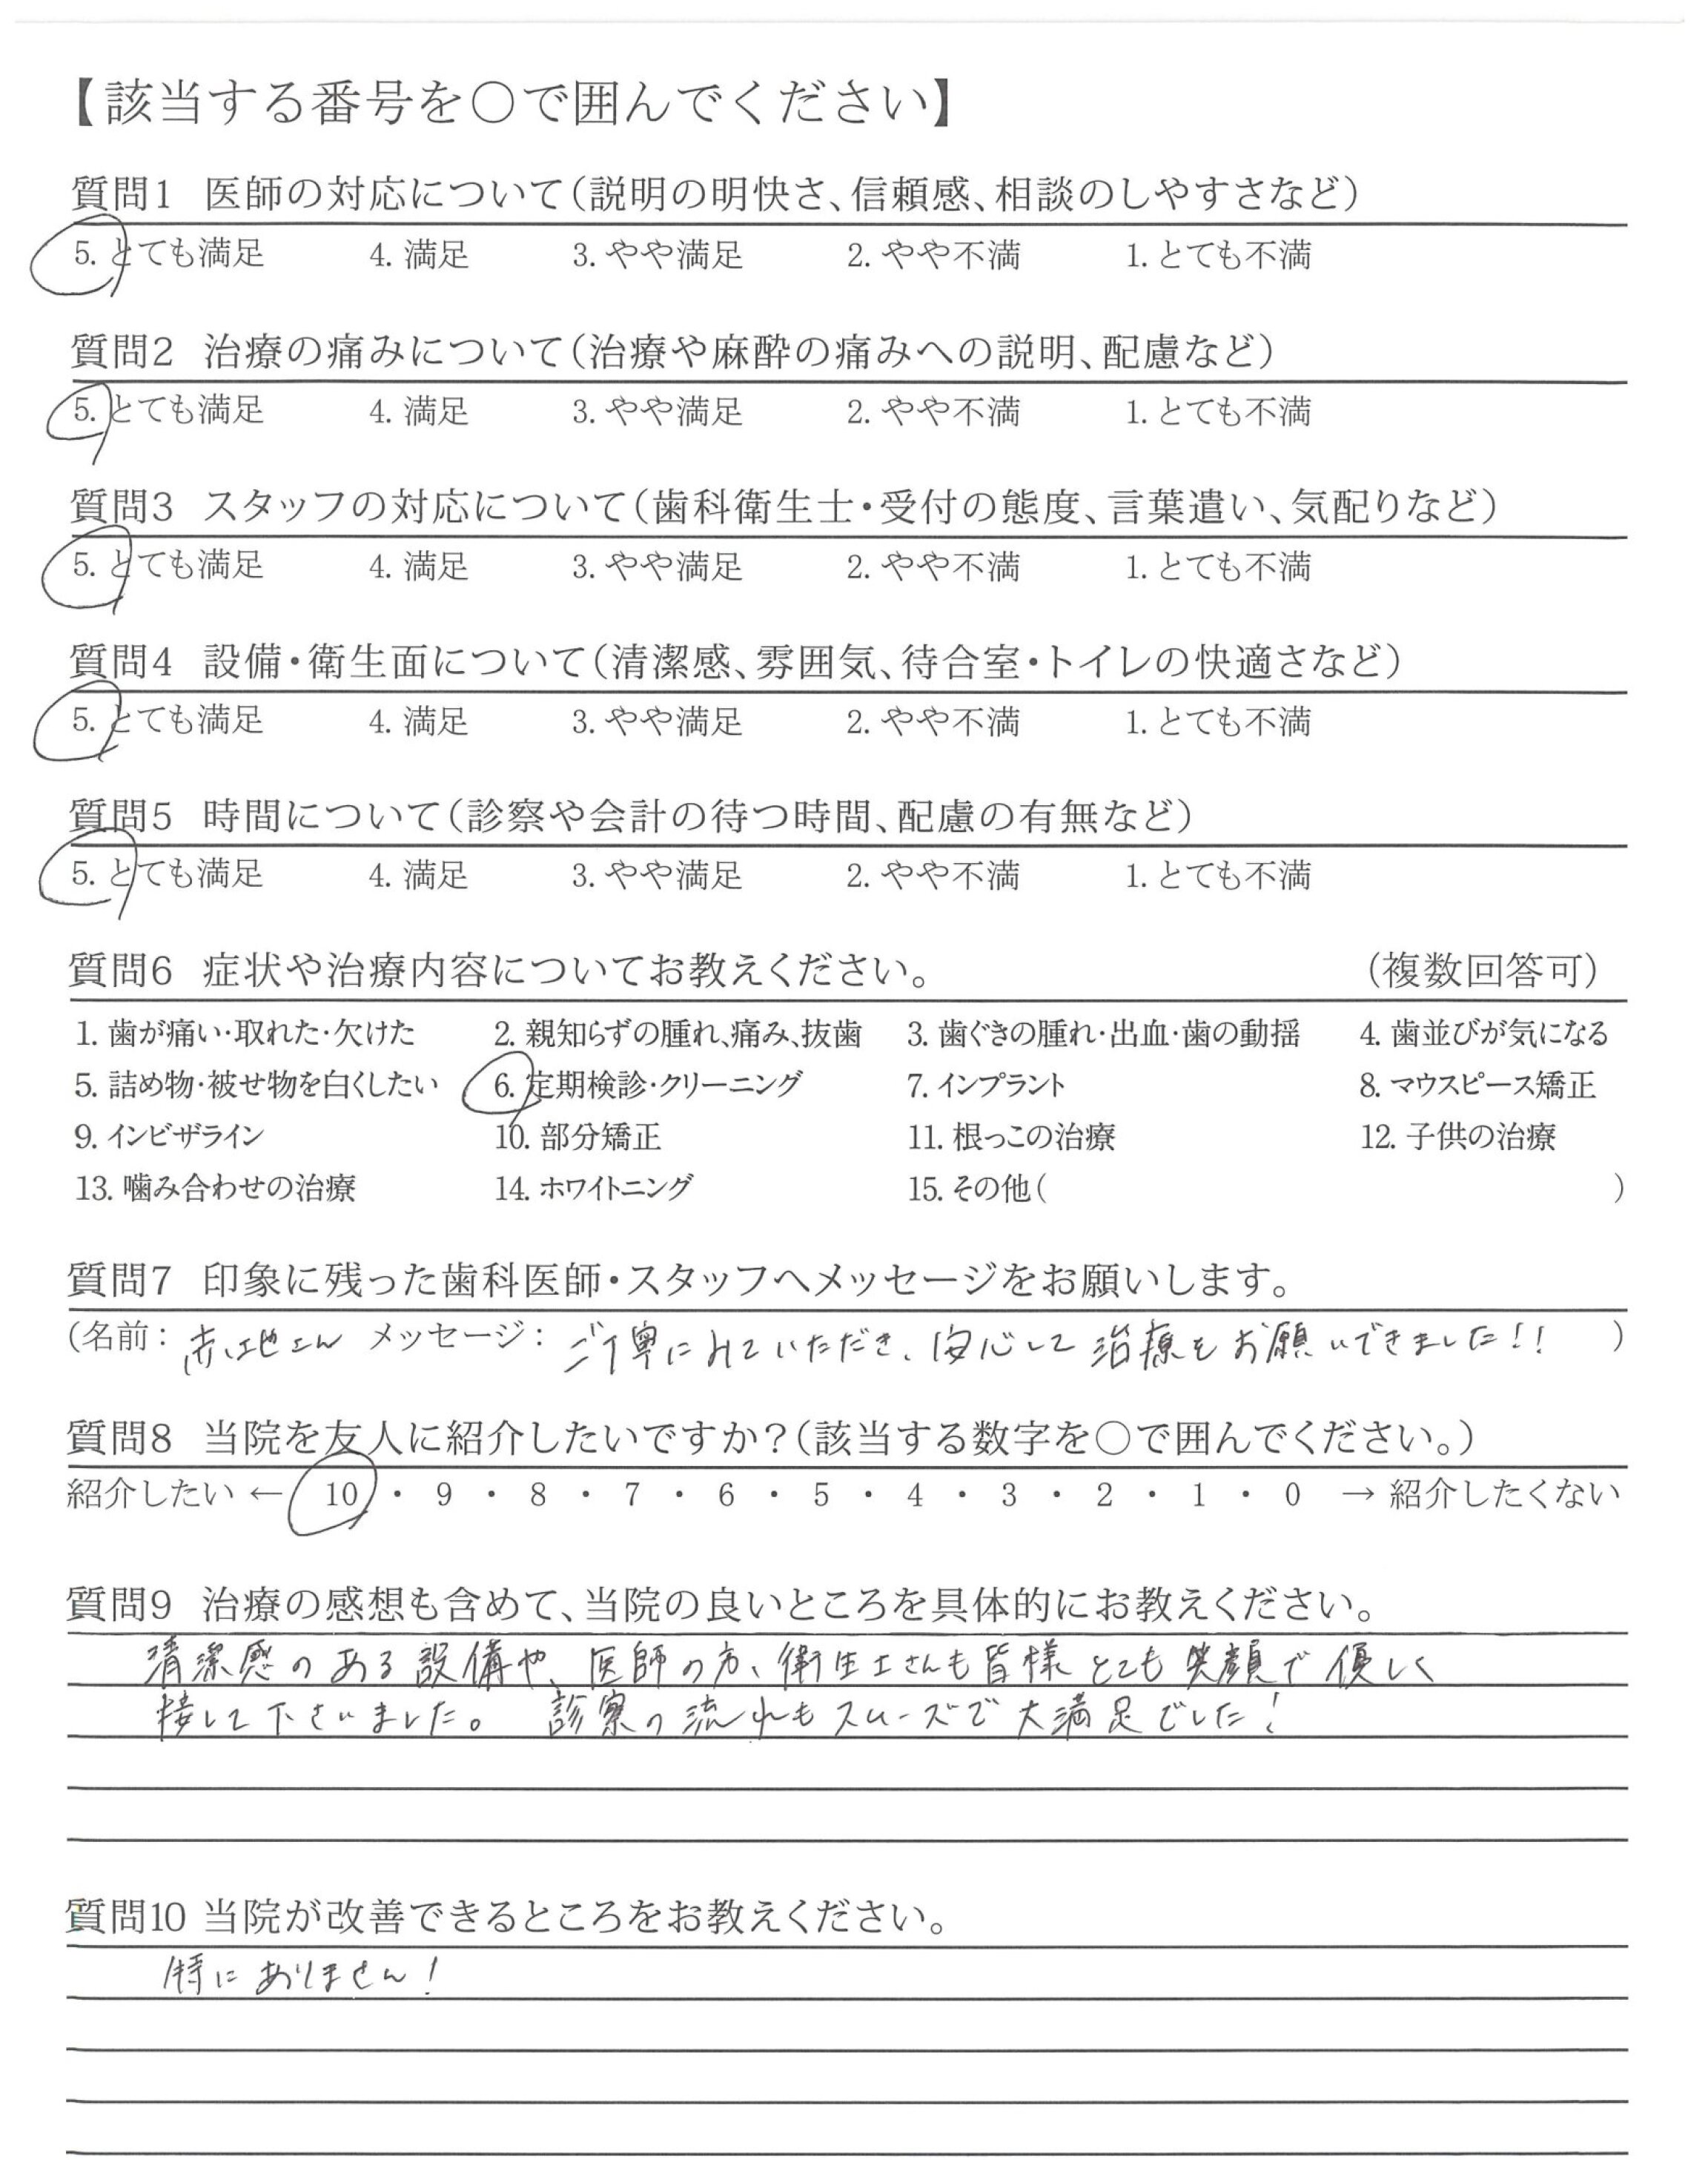 【該当する番号を○で囲んでください】
質問1 医師の対応について(説明の明快さ、信頼感、相談のしやすさなど)
5. とても満足 4. 満足 3. やや満足 2. やや不満 1. とても不満
質問2 治療の痛みについて(治療や麻酔の痛みへの説明、配慮など)
5. とても満足 4. 満足 3. やや満足 2. やや不満 1. とても不満
質問3 スタッフの対応について(歯科衛生士・受付の態度、言葉遣い、気配りなど)
5. とても満足 4. 満足 3. やや満足 2. やや不満 1. とても不満
質問4 設備・衛生面について(清潔感、雰囲気、待合室・トイレの快適さなど)
5. とても満足 4. 満足 3. やや満足 2. やや不満 1. とても不満
質問5 時間について(診察や会計の待つ時間、配慮の有無など)
5. とても満足 4. 満足 3. やや満足 2. やや不満 1. とても不満
質問6 症状や治療内容についてお教えください。 (複数回答可)
1. 歯が痛い・取れた・欠けた 2. 親知らずの腫れ、痛み、抜歯 3. 歯ぐきの腫れ・出血・歯の動揺 4. 歯並びが気になる
5. 詰め物・被せ物を白くしたい 6. 定期検診・クリーニング 7. インプラント 8. マウスピース矯正
9. インビザライン 10. 部分矯正 11. 根っこの治療 12. 子供の治療
13. 噛み合わせの治療 14. ホワイトニング 15. その他( )
質問7 印象に残った歯科医師・スタッフへメッセージをお願いします。
(名前: メッセージ: ご丁寧にみていただき、安心して治療をお願いできました!! )
質問8 当院を友人に紹介したいですか?(該当する数字を○で囲んでください。)
紹介したい ← 10 ・ 9 ・ 8 ・ 7 ・ 6 ・ 5 ・ 4 ・ 3 ・ 2 ・ 1 ・ 0 → 紹介したくない
質問9 治療の感想も含めて、当院の良いところを具体的にお教えください。
清潔感のある設備や、医師の方、衛生士さんも皆様とても笑顔で優しく
接して下さいました。 診察の流れもスムーズで大満足でした!
質問10 当院が改善できるところをお教えください。
特にありません!